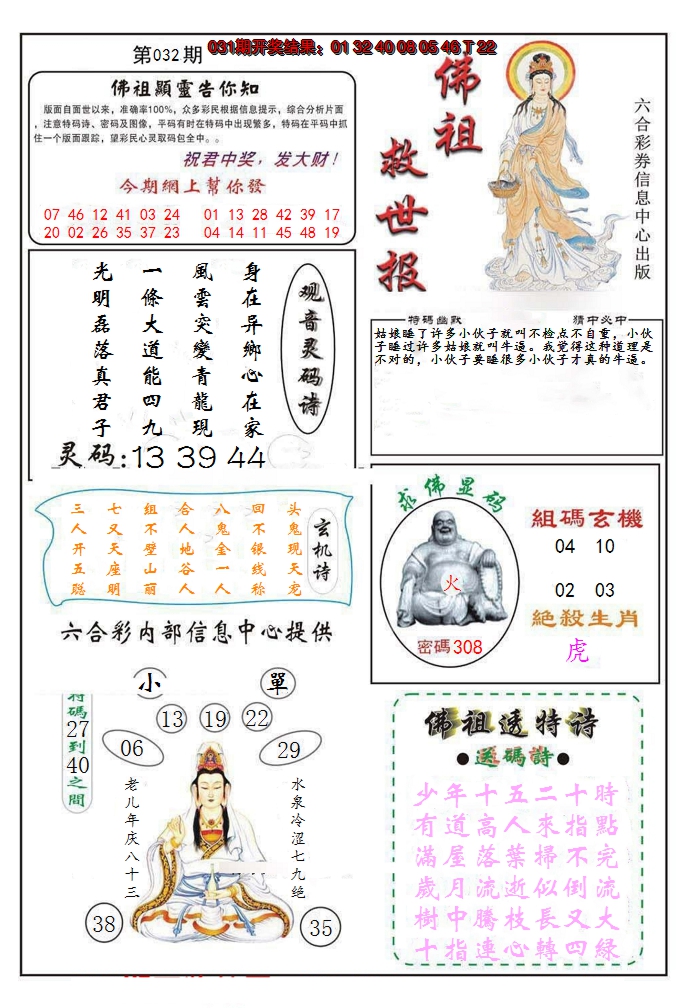 第032期
031期开奖结果：01 32 40 08 05 46 T 22
佛祖顯靈告你知
版面自面世以来，准确率100%，众多彩民根据信息提示，综合分析片面
，注意特码诗、密码及图像，平码有时在特码中出现繁多，特码在平码中抓
住一个版面跟踪，望彩民心灵取码包全中。。
祝君中奖，发大财！
今期網上幫你發
07 46 12 41 03 24 01 13 28 42 39 17
20 02 26 35 37 23 04 14 11 45 48 19
佛祖
救世报
六合彩券信息中心出版
观音灵码诗
身在异鄉心在家
風雲突變青龍現
一條大道能四九
光明磊落真君子
灵码:13 39 44
特碼幽默
猜中必中
姑娘睡了许多小伙子就叫不检点不自重，小伙
子睡过许多姑娘就叫牛逼。我觉得这种道理是
不对的，小伙子要睡很多小伙子才真的牛逼。
玄机诗
头鬼现天宠
回不银线称
八鬼金一人
合人地谷人
组不壁山丽
七又天座明
三人开五聪
六合彩内部信息中心提供
求佛显码
火
密碼308
組碼玄機
04 10
02 03
絕殺生肖
虎
小
單
特碼27到40之間
13 19 22
06
29
老儿年庆八十三
水泉冷涩七九绝
38
35
佛祖透特诗
●送碼詩●
少年十五二十時
有道高人來指點
滿屋落葉掃不完
歲月流逝似倒流
樹中騰枝長又大
十指連心轉四緑